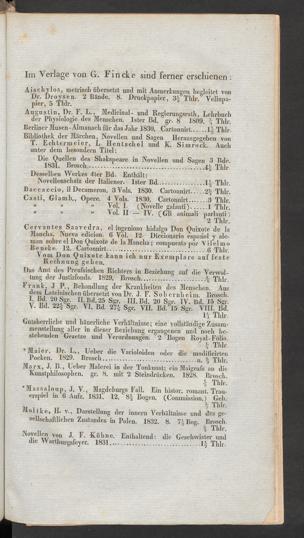 Im Verlage von G. Fincke sind ferner erschienen:
Aischylos, metrisch übersetzt und mit Anmerkungen begleitet von
Dr. Droysen. 2 Bände. 8. Druckpapier, 3½ Thlr. Velinpa-
pier, 5 Thlr.
Augustin, Dr. F. L., Medicinal- und Regierungsrath, Lehrbuch
der Physiologie des Menschen. 1ster Bd, gr. 8 1809. ½ Thlr.
Berliner Musen-Almanach für das Jahr 1830, Cartonnirt.....1½ Thlr
Bibliothek der Märchen, Novellen und Sagen Herausgegeben von
T. Echtermeier, L Hentschel und K. Simrock. Auch
unter dem besondern Titel:
Die Quellen des Shakspeare in Novellen und Sagen 3 Bde.
1831. Brosch. 4½ Thlr
Desselben Werkes 4ter Bd. Enthält:
Novellenschatz der Italiener. 1ster Bd. 1½ Thlr.
Boccaccio, il Decameron, 3 Vols. 1830. Cartonnirt. 2½ Thlr.
Casti, Giamb., Opere. 4 Vols. 1830. Cartonnirt. 3 Thlr.
" " " Vol. I. (Novelle galanti) 1 Thlr.
" " " Vol. II — IV. (Gli animali parlanti)
2 Thlr.
Cervantes Saavedra, el ingenioso hidalgo Don Quixote de la
Mancha. Nueva edicion. 6 Vol. 12 Diccionario español y ale-
man sobre el Don Quixote de la Mancha; compuesto por
Beneke. 12. Cartonnirt. 6 Thlr.
Vom Don Quixote kann ich nur Exemplare auf feste
Rechnung geben.
Das Amt des Preußischen Richters in Beziehung auf die Verwal-
tung der Justizfonds. 1829, Brosch. ½ Thlr.
Frank, J P., Behandlung der Krankheiten des Menschen. Aus
dem Lateinischen übersetzt von Dr. J. F. Sobernheim. Brosch.
I. Bd. 20 Sgr. II. Bd. 25 Sgr. III. Bd. 20 Sgr. IV. Bd. 15 Sgr.
V. Bd. 22½ Sgr. VI. Bd. 27½ Sgr. VII. Bd. 15 Sgr. VIII. Bd.
Thlr.
Gutsherrliche und bäuerliche Verhältnisse; eine vollständige Zusam-
menstellung aller in dieser Beziehung ergangenen und noch be-
stehenden Gesetze und Verordnungen. 2 Bogen Royal-Folio.
Thlr.
*Maier, Dr. L., Ueber die Varioloiden oder die modificirten
Pocken. 1829. Brosch. Thlr.
Marx, J. B., Ueber Malerei in der Tonkunst; ein Maigruß an die
Kunstphilosophen. gr. 8. mit 2 Steindrücken. 1828. Brosch.
Thlr.
*Massaloup, J. V., Magdeburgs Fall. Ein histor. romant. Trau-
erspiel in 6 Aufz. 1831. 12. 8½ Bogen. (Commission.) Geh.
Thlr.
Moltke, H. v., Darstellung der innern Verhältnisse und des ge-
sellschaftlichen Zustandes in Polen. 1832. 8. 7½ Bog. Brosch.
Thlr.
Novellen von J. F. Kühne. Enthaltend: die Geschwister und
die Wartburgsfeyer. 1831. 1½ Thlr.